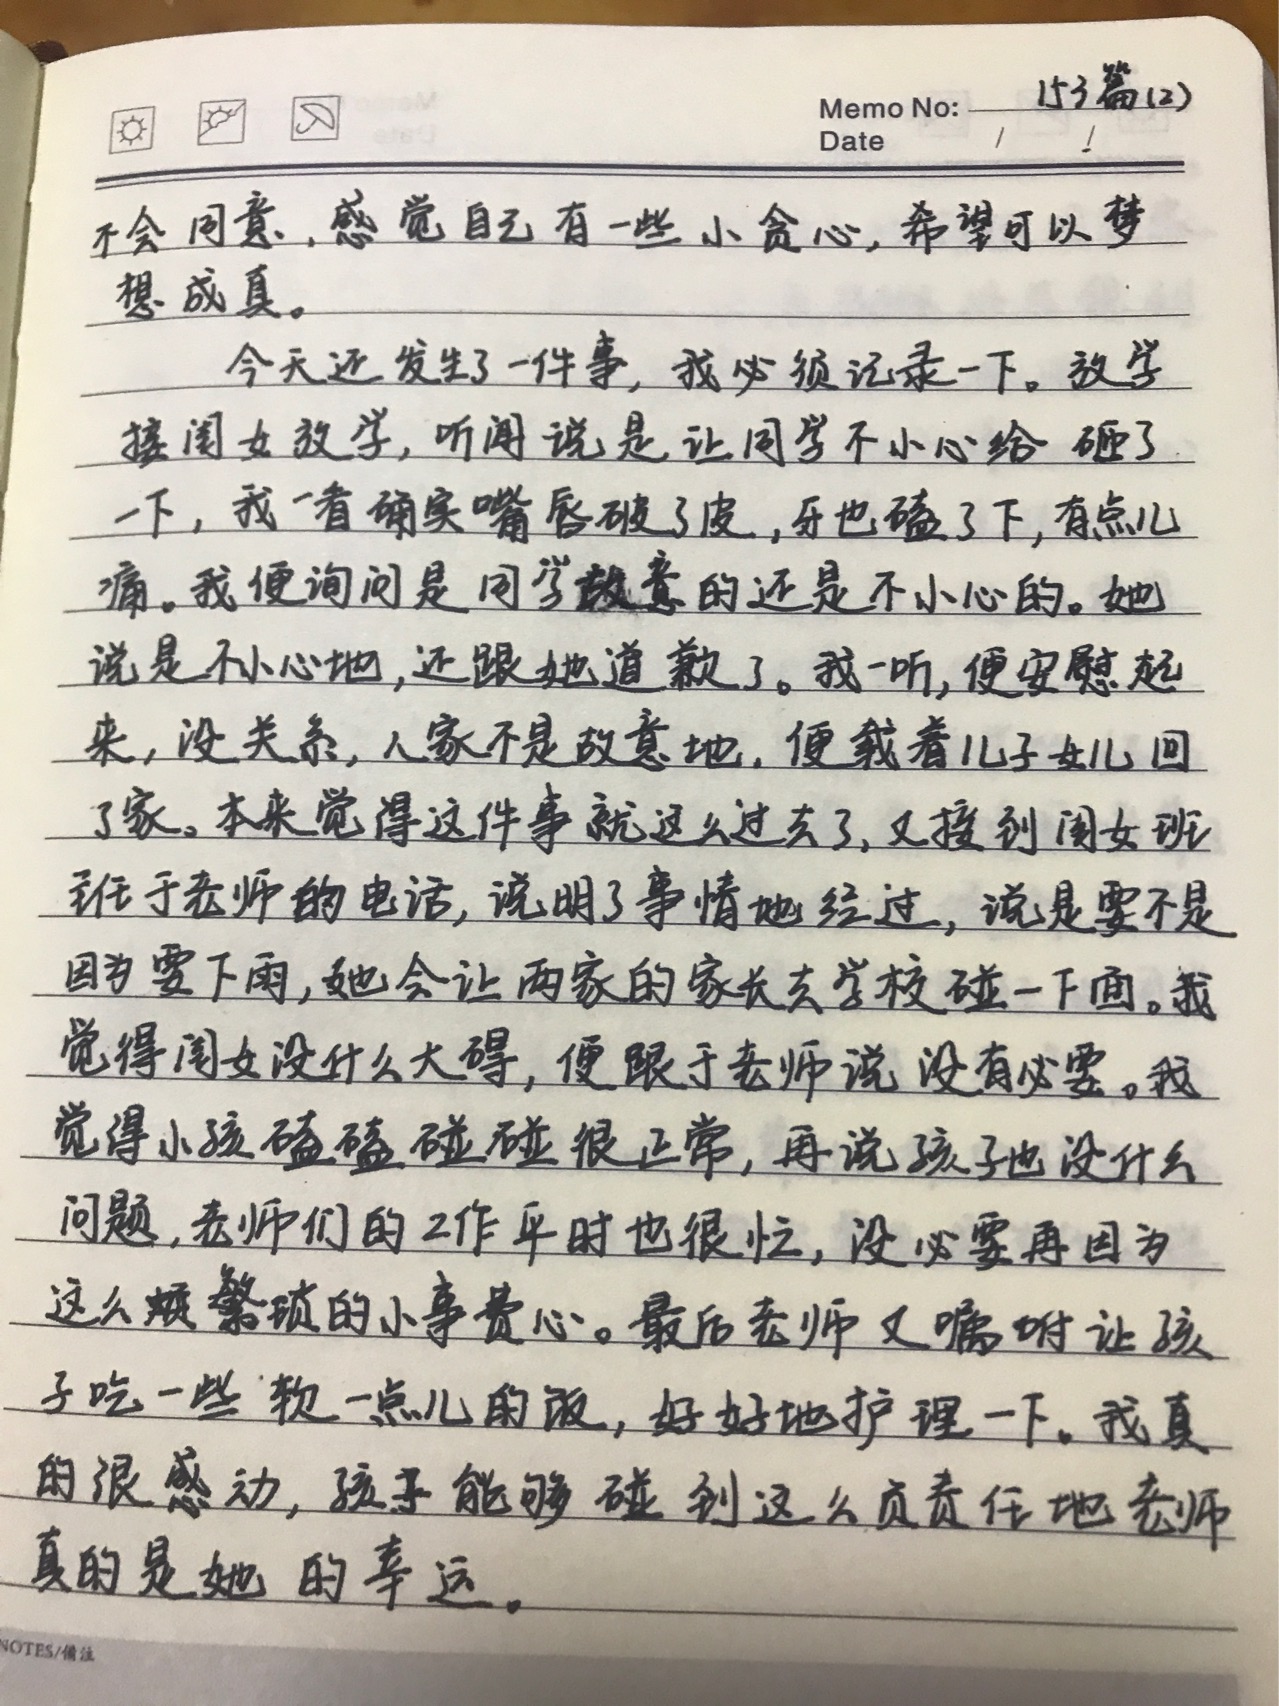 Memo No: 153篇(2)
Date / /
不会同意，感觉自己有一些小贪心，希望可以梦
想成真。
今天还发生了一件事，我必须记录一下。放学
接闺女放学，听闺说是让同学不小心给砸了
一下，我一看确实嘴唇破了皮，牙也磕了下，有点儿
痛。我便询问是同学故意的还是不小心的。她
说是不小心地，还跟她道歉了。我一听，便安慰起
来，没关系，人家不是故意地，便载着儿子女儿回
了家。本来觉得这件事就这么过去了，又接到闺女班
主任于老师的电话，说明了事情地经过，说是要不是
因为要下雨，她会让两家的家长去学校碰一下面。我
觉得闺女没什么大碍，便跟于老师说没有必要。我
觉得小孩磕磕碰碰很正常，再说孩子也没什么
问题，老师们的工作平时也很忙，没必要再因为
这么烦繁琐的小事费心。最后老师又嘱咐让孩
子吃一些软一点儿的饭，好好地护理一下。我真
的很感动，孩子能够碰到这么负责任地老师
真的是她的幸运。
NOTES/備注